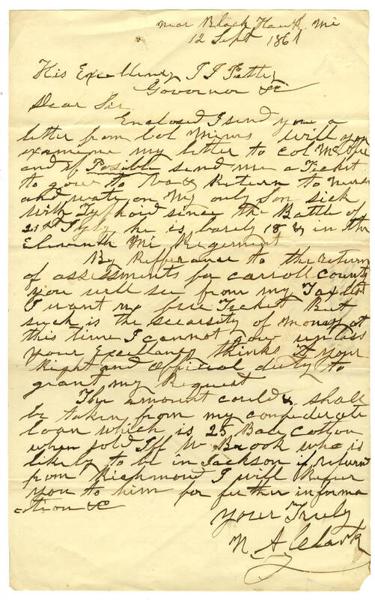 near Black Hawk, Mi
12 Sept 1861
His Excellency J J Pettus
Governor &c
Dear Sir
Enclosed I send you a
letter from Col Mims will you
examine my letter to Col
and if Posible send me a Ticket
to go to Va & Return to nurse
and wate on My only Son sick
with Tyfhoid since the Battle of
21st July he is barely 18 & in the
Eleventh Mi Regement
By Refferance to the return
of assessments for carroll County
you will see from my Taxlist
I want no free Ticket But
such is the scearsity of money at
this time I cannot go unless
your Excellency thinks it your
Right and official duty to
grant my Request
The amount could & shall
be taken from my confederate
loan which is 25 Bale Cotton
when sold Iff Mr Brook who is
likely to be in Jackson if returnd
from Richmond I will Refer
you to him for further informa
-tion &c
Yours Truly
N. A. Clark